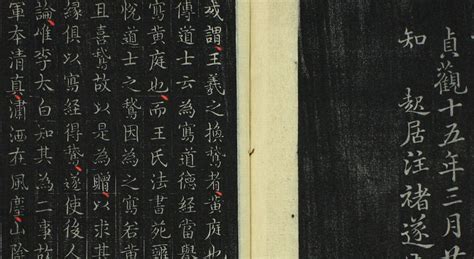 貞觀十五年三月
知 起居注褚遂
或謂王羲之換鵞者黃庭
傳道士云為寫道德經當舉
寫黃庭也而王氏法書苑
悅道士之鵞因為之寫若黃
且喜鵞故以是為贈以求其
緣俱以寫經得鵞遂使後人
論惟李太白知其為二事故
軍本清真瀟洒在風塵山陰